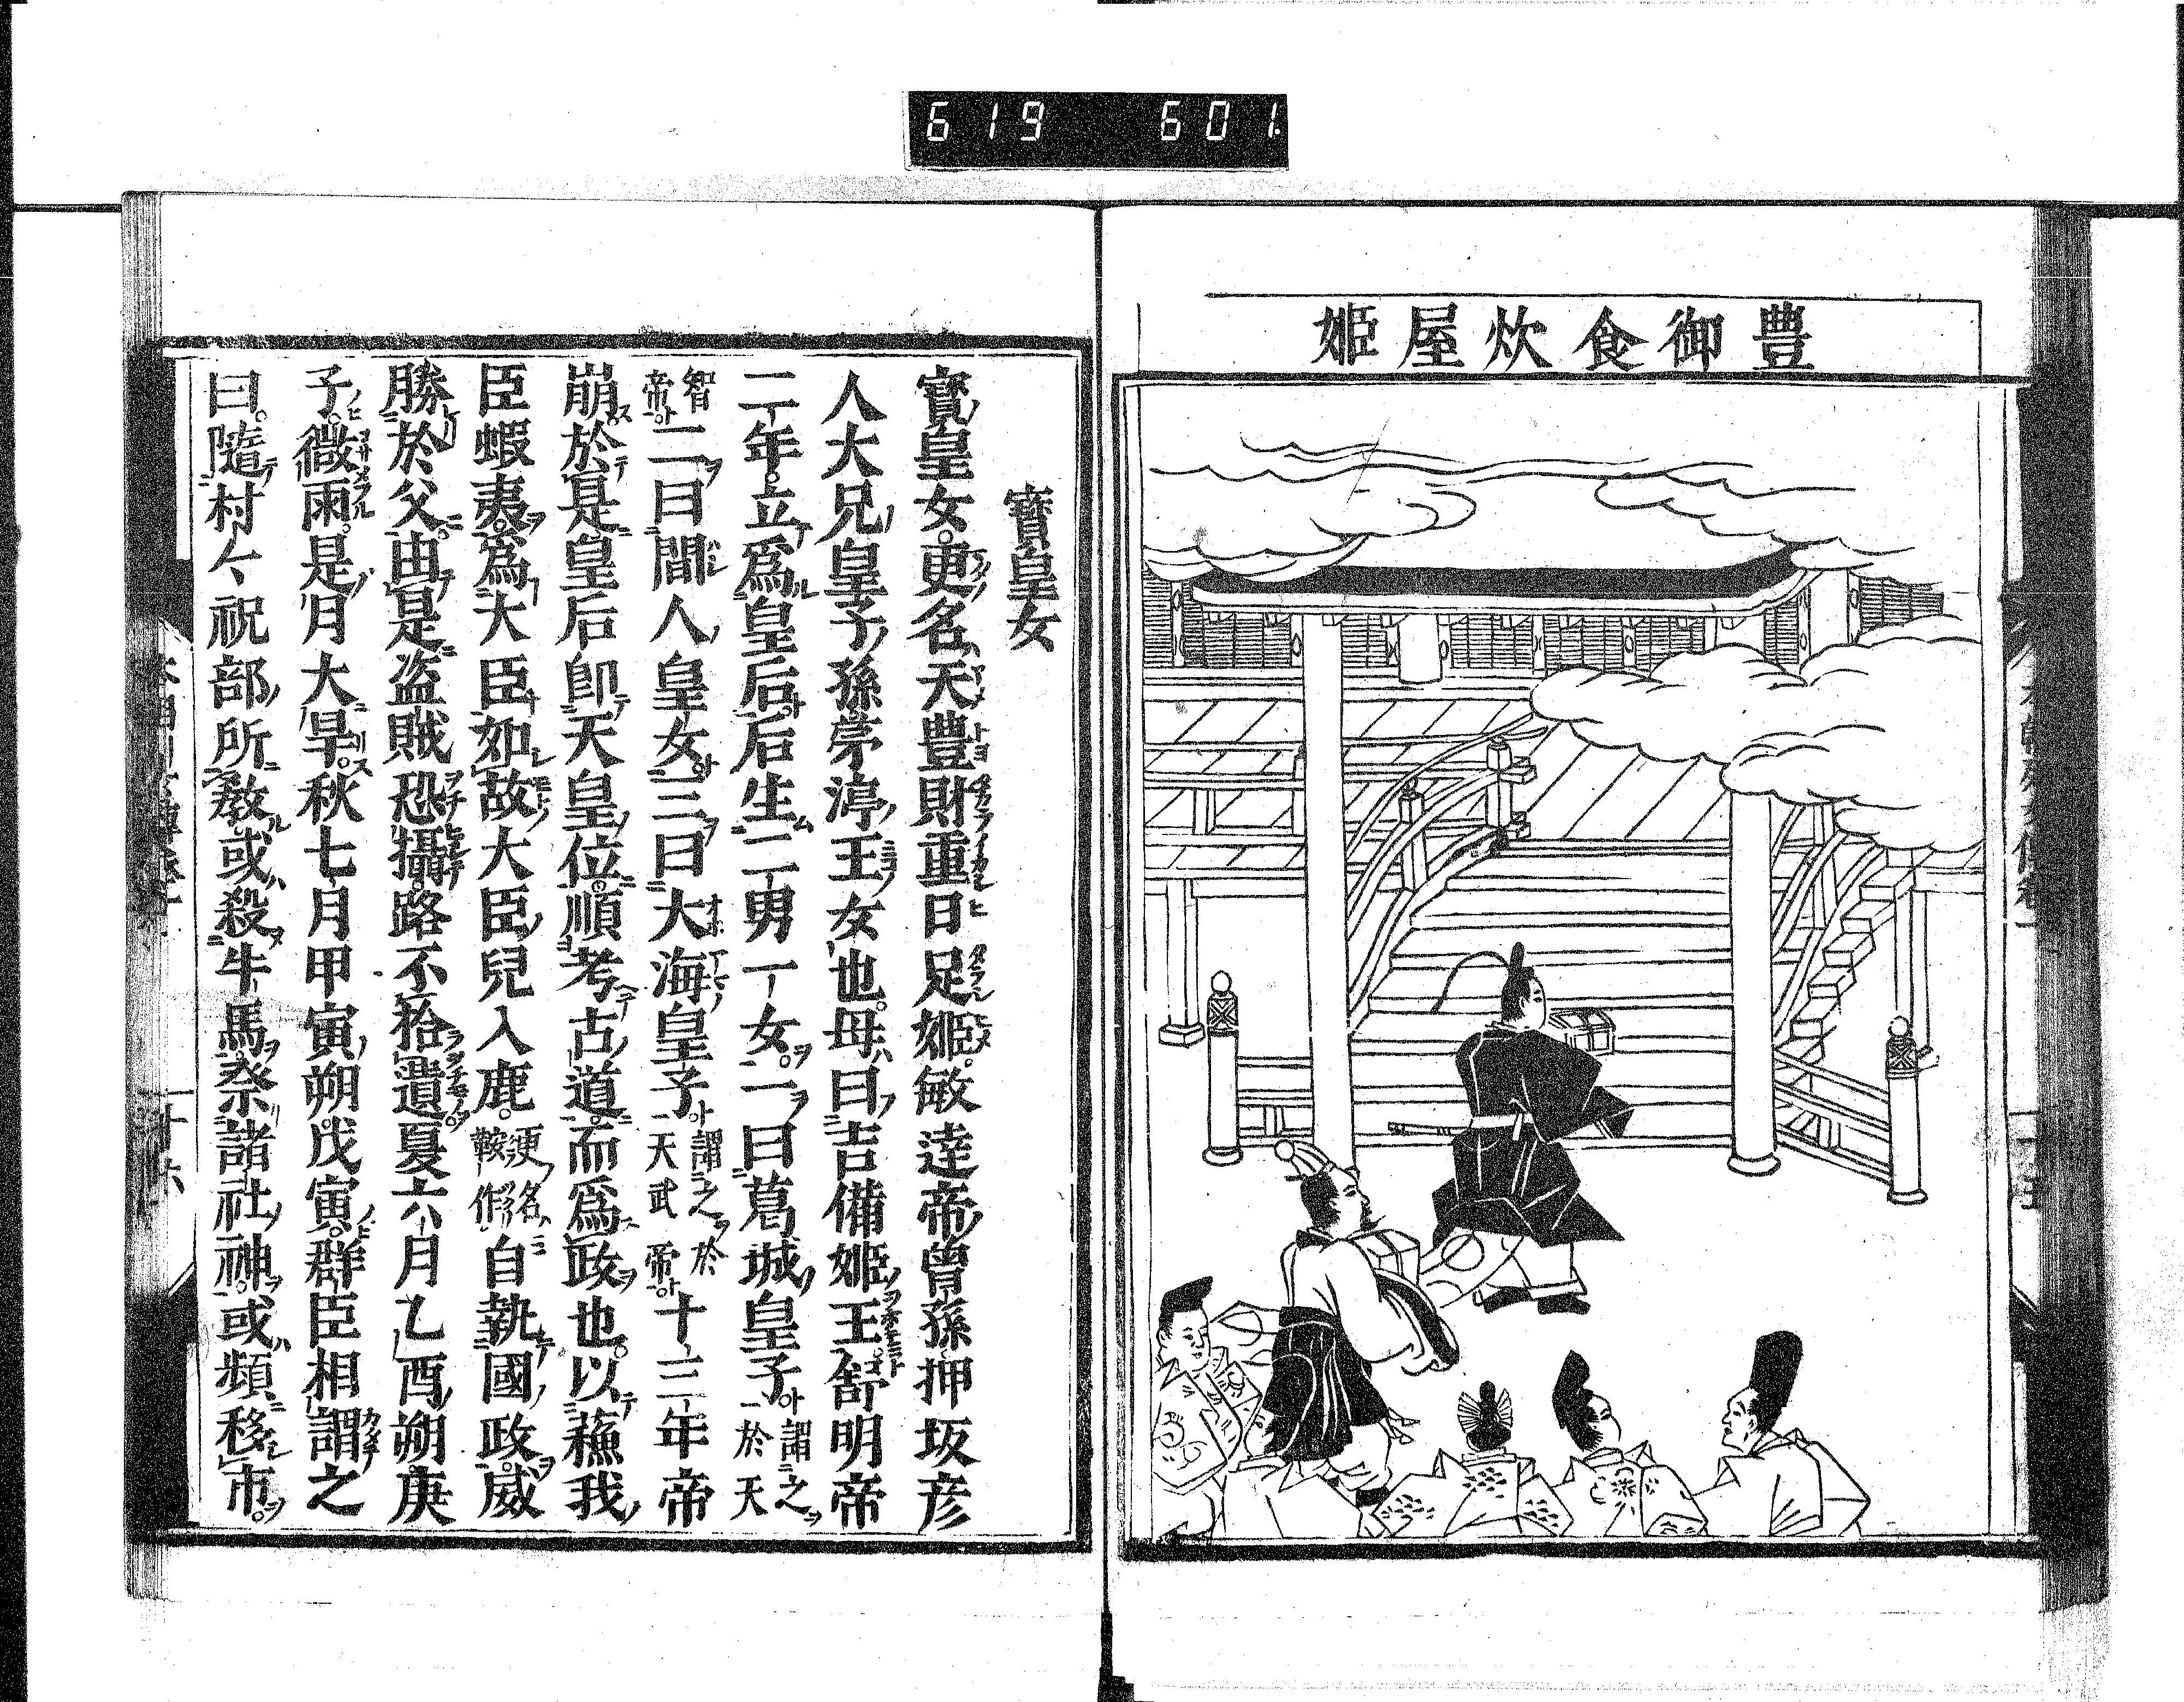 619 601
豊御食炊屋姫
寳皇女
寳皇女。更名天豊財重日足姫。敏達帝曾孫押坂彦
人大兄皇子孫茅渟王女也。母曰吉備姫王。舒明帝
二年。立爲皇后。后生二男一女。一曰葛城皇子謂之於天
智帝二曰間人皇女三曰大海皇子謂之於天武帝十三年帝
崩。於是皇后卽天皇位。順考古道。而爲政也。以蘓我
臣蝦夷。爲大臣如故。大臣兒入鹿。更名鞍作自執國政。威
勝於父。由是盗賊恐攝。路不拾遺。夏六月乙酉朔庚
子。微雨。是月大旱。秋七月甲寅朔。戊寅。群臣相謂之
曰。隨村々祝部所敎。或殺牛馬祭諸社神。或頻移市。
十六